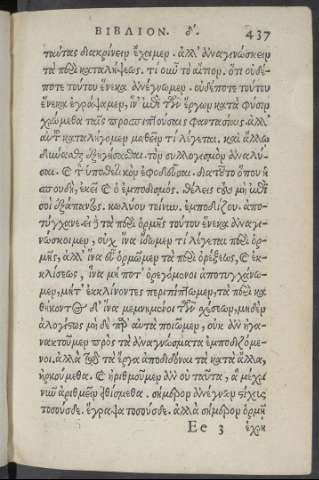 ΒΙΒΛΙΟΝ. δ'. 437
ταύτας διακρίνειν ἔχομεν. ἀλλ' ἀναγινώσκειν
τὰ περὶ καταλήψεως. τί οὖν τὸ αἴτιον. ὅτι οὐδέ-
ποτε τούτου ἕνεκα ἀνέγνωμεν. οὐδέποτε τούτου
ἕνεκα ἐγράψαμεν, ἵν' ἐπὶ τῶν ἔργων κατὰ φύσιν
χρώμεθα ταῖς προσπιπτούσαις φαντασίαις. ἀλλ'
αὐτοῦ καταλήγομεν μαθεῖν τί λέγεται. καὶ ἄλλῳ
δύνασθαι ἐξηγήσασθαι. τὸν συλλογισμὸν ἀναλύ-
σαι. καὶ τὸ ὑποθετικὸν ἐφοδεῦσαι. διατοῦτο ὅπου ἡ
σπουδή, ἐκεῖ καὶ ὁ ἐμποδισμός. θέλεις τὰ μὴ ἐπὶ
σοὶ ἐξάπαντος. κωλύου τοίνυν. ἐμποδίζου. ἀπο-
τύγχανε. εἰ τὰ περὶ ὁρμῆς τούτου ἕνεκα ἀναγι-
νώσκοιμεν, οὐχ ἵνα ἴδωμεν τί λέγεται περὶ ὁρ-
μῆς, ἀλλ' ἵνα εὖ ὁρμῶμεν τὰ περὶ ὀρέξεως, καὶ ἐκ-
κλίσεως, ἵνα μὴ ποτ' ὀρεγόμενοι ἀποτυγχάνω-
μεν, μήτ' ἐκκλίνοντες περιπίπτωμεν, τὰ περὶ κα
θήκοντος δ' ἵνα μεμνημένοι τῶν σχέσεων, μηδὲν
ἀλογίστως μηδὲ παρ' αὐτὰ ποιῶμεν, οὐκ ἂν ἠγα-
νακτοῦμεν πρὸς τὰ ἀναγνώσματα ἐμποδιζόμε-
νοι. ἀλλὰ τῷ τὰ ἔργα ἀποδιδόναι τὰ κατάλληλα,
ἠρκούμεθα. καὶ ἠριθμοῦμεν ἂν οὐ ταῦτα, ἃ μέχρι
νῦν ἀριθμεῖν εἰθίσμεθα. σήμερον ἀνέγνων στίχους
τοσούσδε. ἔγραψα τοσούσδε. ἀλλὰ σήμερον ὁρμῇ
Ee 3 ἐχρη